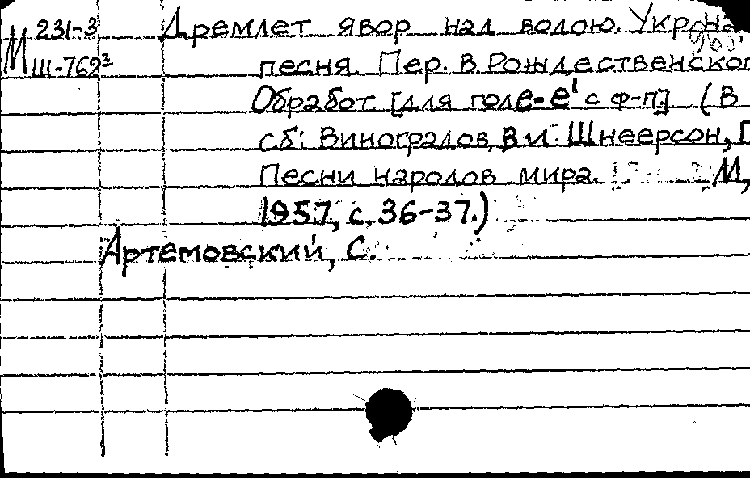 М 231-3 Дремлет явор над водою. Укр. на
Ш-762³ песня. Пер. В. Рождественског
Обработ. [для гол e-e' с ф-п] (В
сб: Виноградов, В и Шнеерсон, Г
Песни народов мира. М,
1957, с. 36-37.)
Артемовский, С.